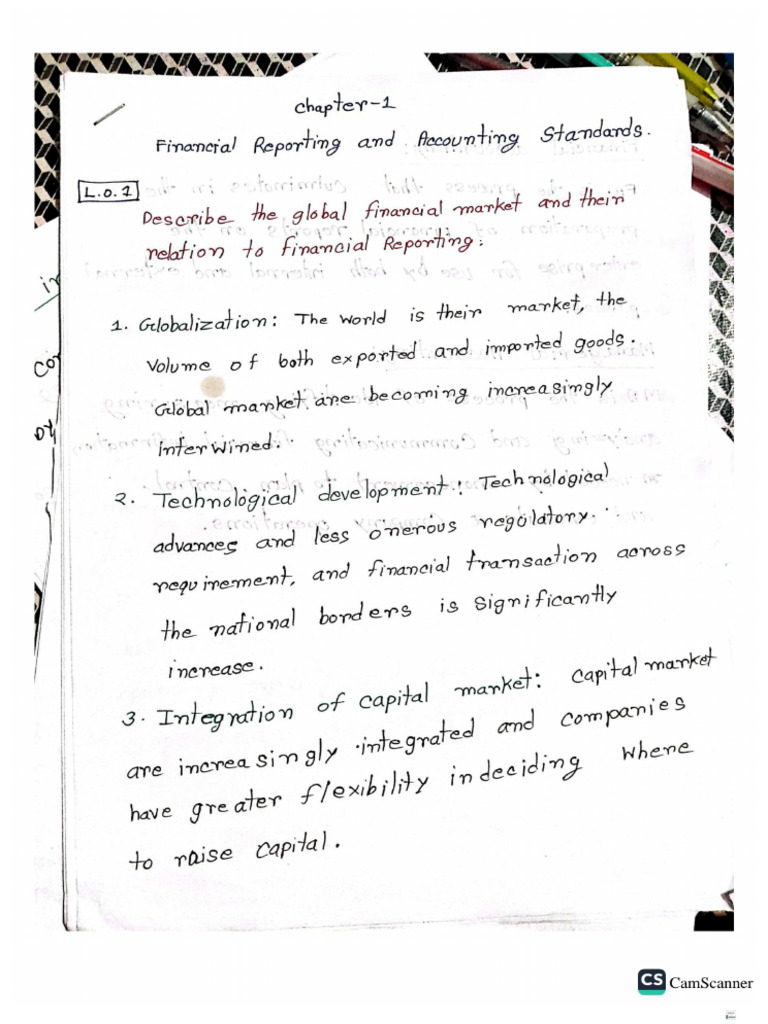 chapter-1
Financial Reporting and Accounting Standards.
L.O.1
Describe the global financial market and their
relation to financial Reporting:
1. Globalization: The world is their market, the
volume of both exported and imported goods.
Global market are becoming increasingly
InterWined.
2. Technological development: Technological
advances and less onerous regulatory.
requirement, and financial transaction across
the national borders is significantly
increase.
3. Integration of capital market: capital market
are increasingly integrated and companies
have greater flexibility in deciding where
to raise capital.
CS CamScanner